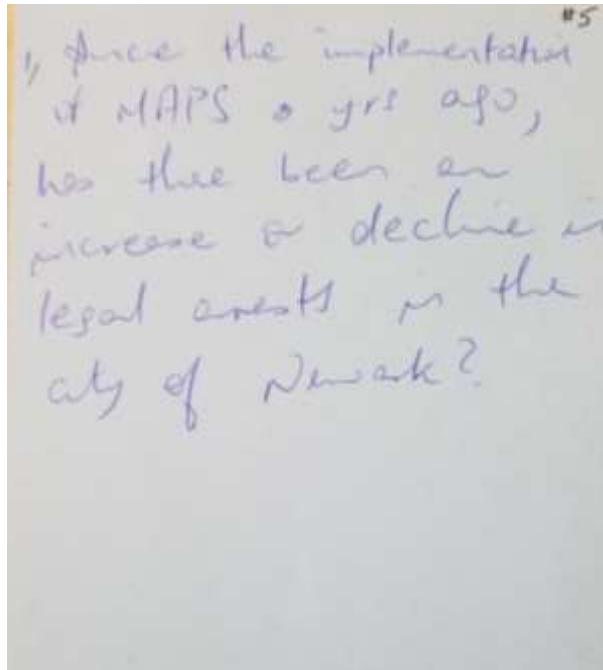 #5
1, Since the implementation
of MAPS yrs ago,
has there been an
increase or decline in
legal arrests in the
city of Newark?